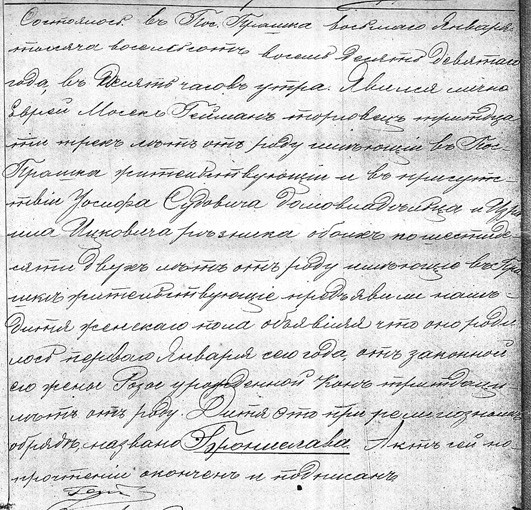 Состоялось въ Пос. Прашка восьмаго Января
тысяча восемьсотъ восемь десятъ девятаго
года, въ десять часовъ утра. Явился лично
Еврей Мосекъ Гейманъ торговецъ тридца
ти трехъ лѣтъ отъ роду имѣющій въ Пос.
Прашка жительствующій и въ присутс-
твіи Іосифа Судовича домовладѣльца и Изра
ила Ицковича рѣзника обоихъ по шестиде
сяти двухъ лѣтъ отъ роду имѣющіе въ Пра
шкѣ жительствующіе предъявили намъ
дитя женскаго пола объявляя что оно роди
лось перваго Января сего года, отъ законной
его жены Розы урожденной Конъ тридцати
лѣтъ отъ роду. Дитя это при религіозномъ
обрядѣ, названо Брониславa. Актъ сей по
прочтеніи оконченъ и подписанъ